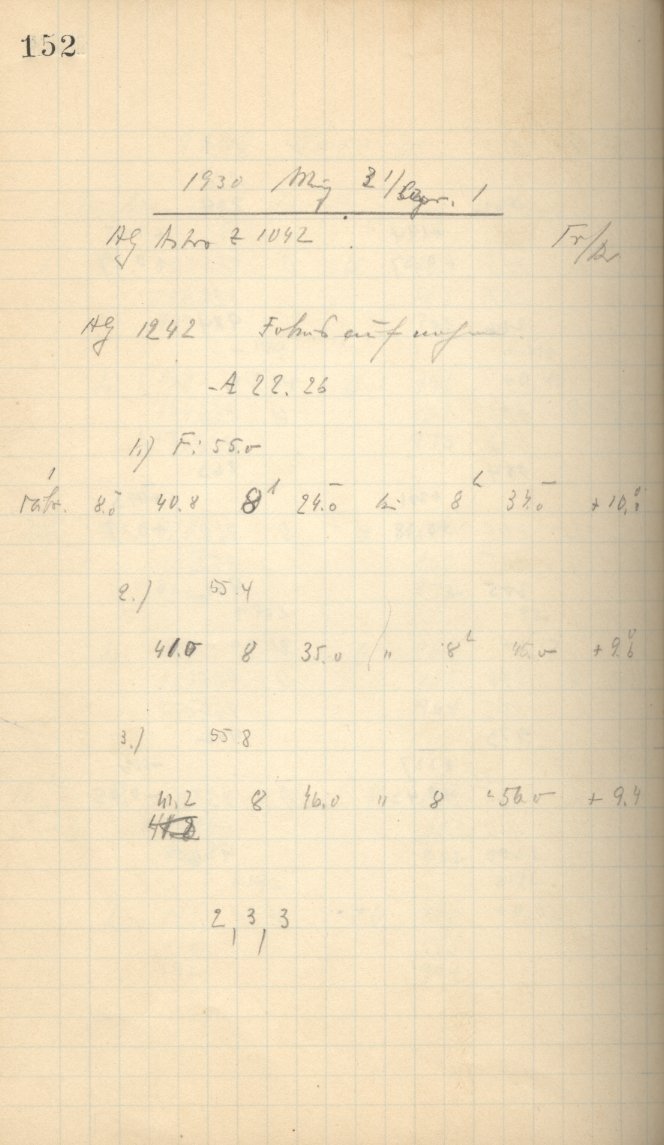 152
1930 Aug 31/Sept. 1
AG Astro Z 1042 Fr/
AG 1242 Fokusaufnahme
-A 22.26
1.) F: 55.0
40.8 8 24.0 bis 8h 34.0 +10.
2.) 55.4
41.0 8 35.0 " 8h 45.0 +9.
3.) 55.8
41.2 8 46.0 " 8 56.0 +9.4
2, 3, 3